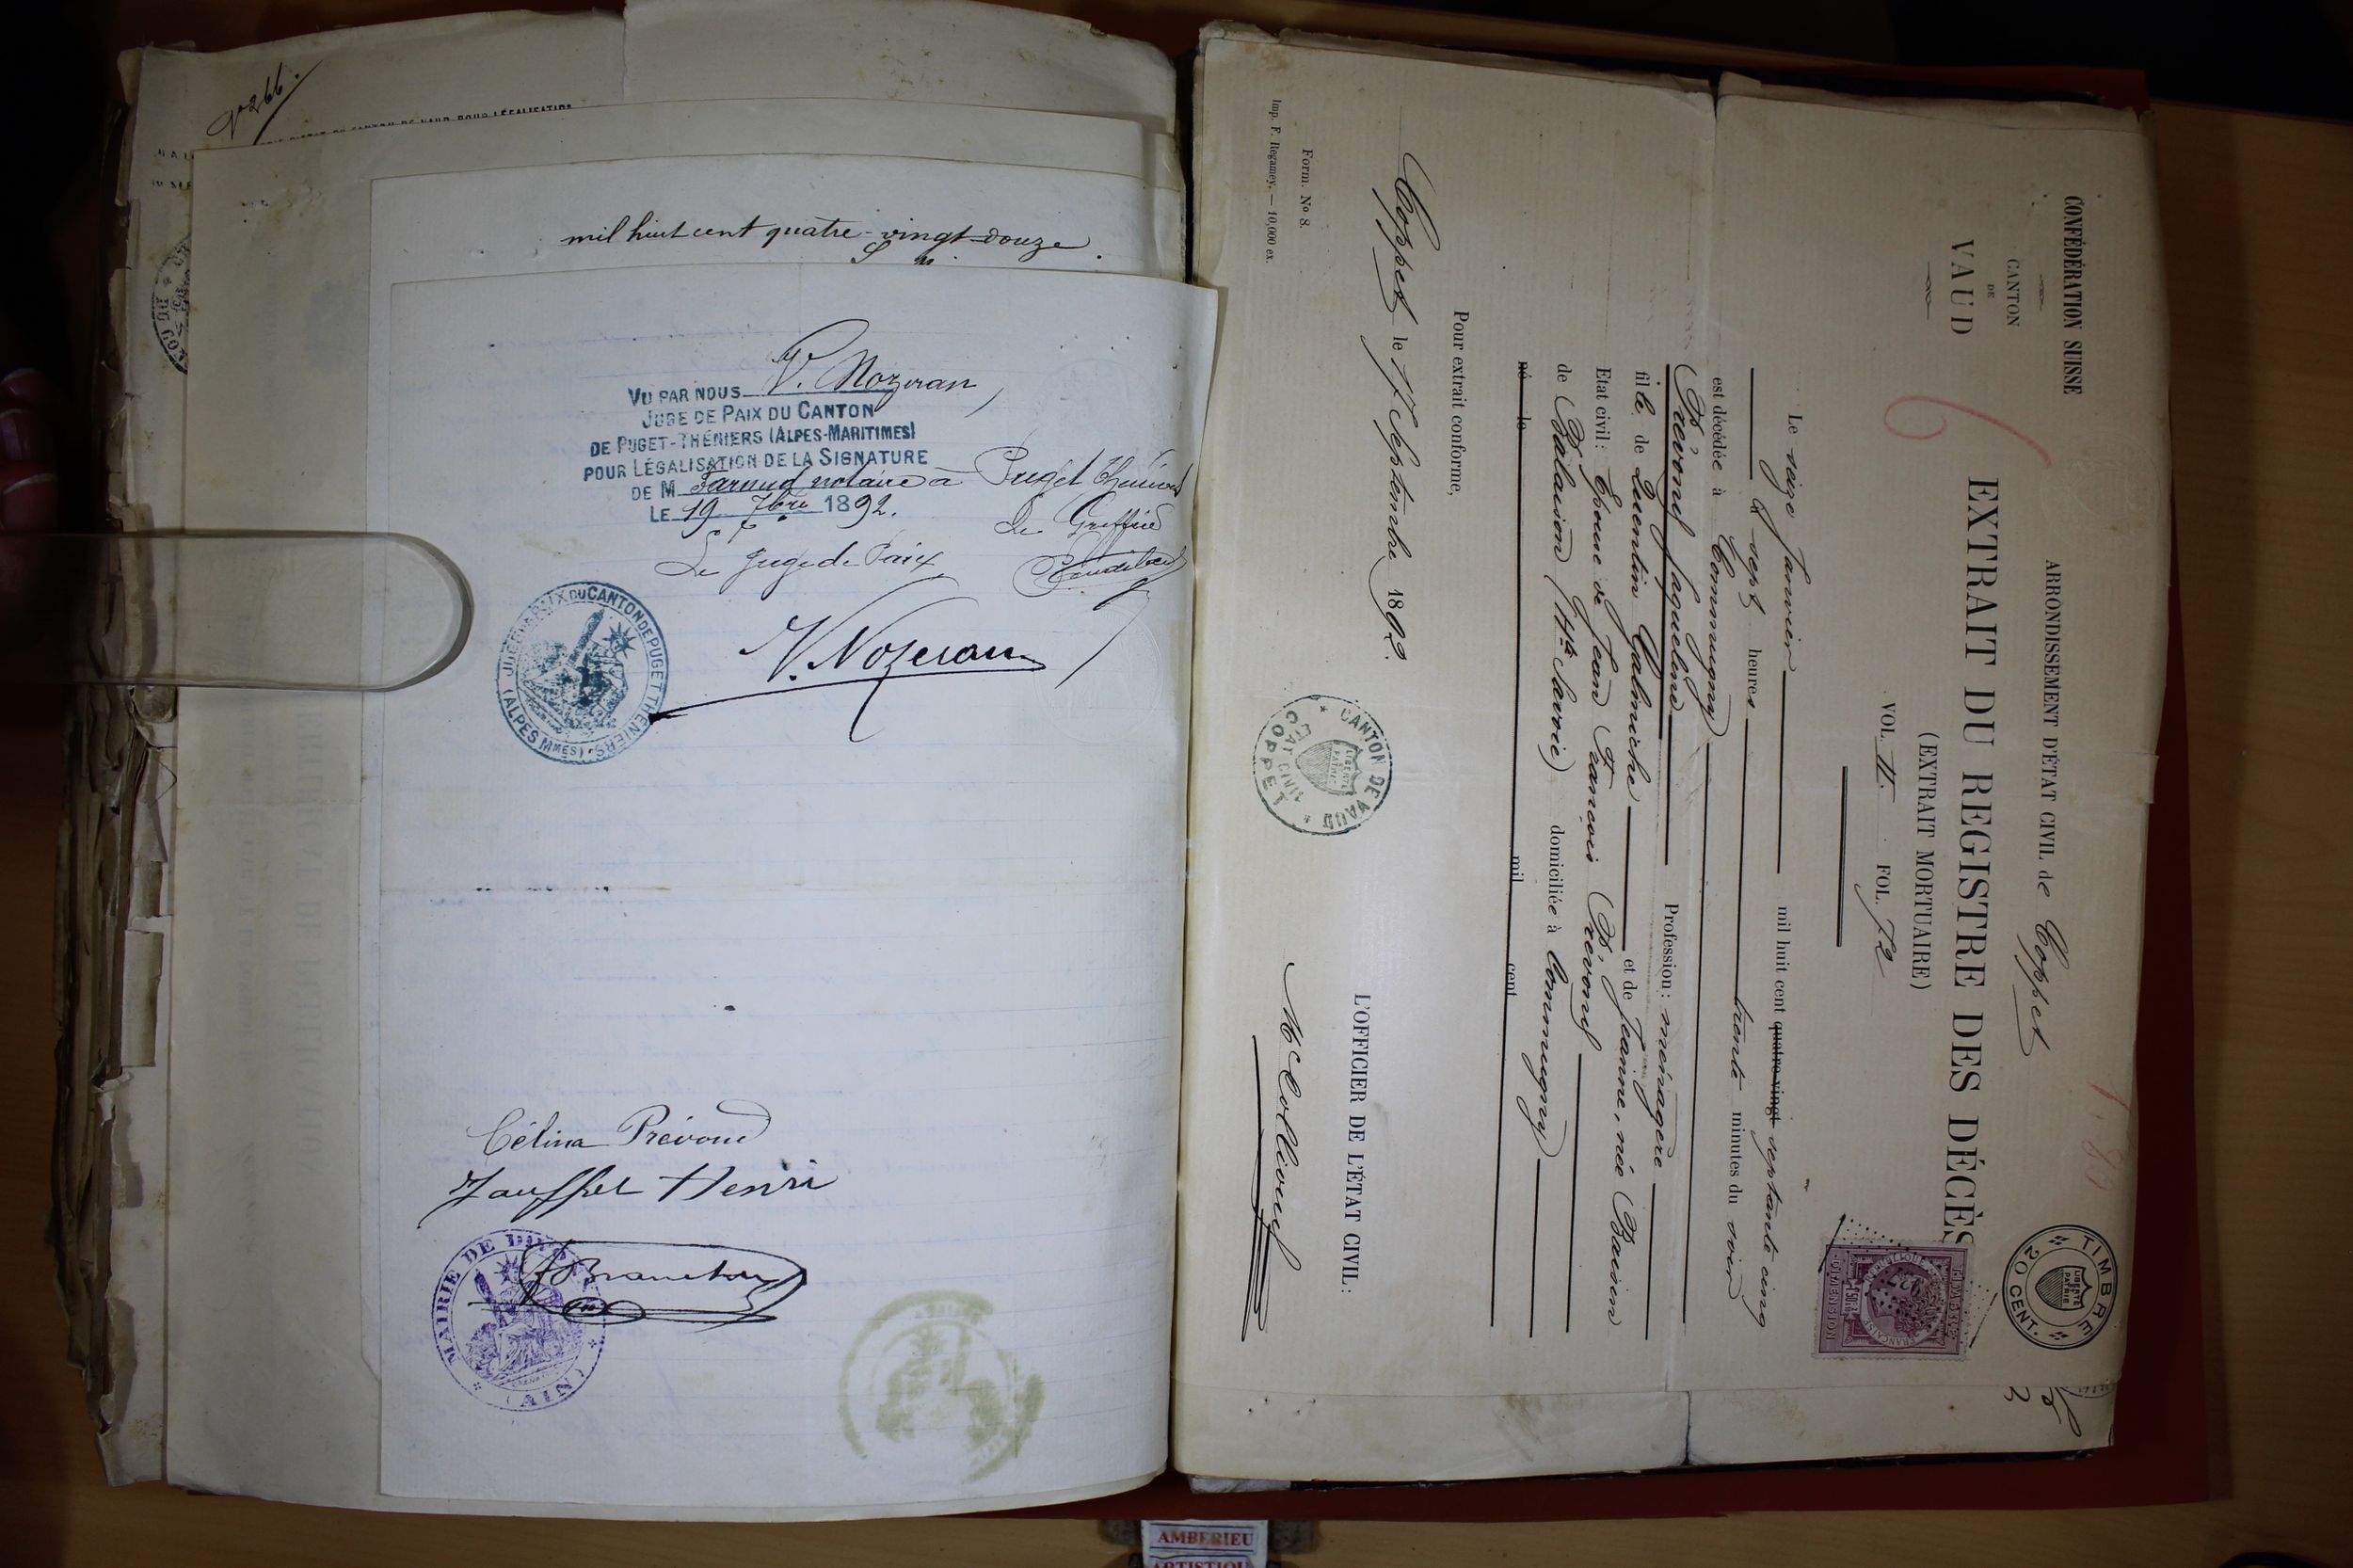 mil huit cent quatre-vingt-douze
VU PAR NOUS V. Nozeran,
JUGE DE PAIX DU CANTON
DE PUGET-THÉNIERS (ALPES-MARITIMES)
POUR LÉGALISATION DE LA SIGNATURE
DE M notaire à Puget Théniers
LE 19 7bre 1892.
Le Greffier
Le Juge de Paix
V. Nozeran
JUGE DE PAIX DU CANTON DE PUGET THÉNIERS
(ALPES MMES)
Célina Prévond
Jauffret Henri
MAIRIE DE
(AIN)
CONFÉDÉRATION SUISSE
CANTON
DE
VAUD
6
ARRONDISSEMENT D'ÉTAT CIVIL de Coppet
EXTRAIT DU REGISTRE DES DÉCÈS
(EXTRAIT MORTUAIRE)
VOL. II. FOL. 72
TIMBRE
LIBERTÉ
PATRIE
20 CENT.
Le seize Janvier mil huit cent quatre-vingt septante cinq
à sept heures trente minutes du soir
est décédée à Commugny
Prévond Jaqueline Profession: ménagère
fille de Quentin Galmiche et de Jeanne, née Bain
Etat civil: Epouse de Jean François Prévond
de Balaison (Hte Savoie) domiciliée à Commugny
né le mil cent
Pour extrait conforme,
Coppet le 17 Septembre 1892.
L'OFFICIER DE L'ÉTAT CIVIL:
CANTON DE VAUD
LIBERTÉ
PATRIE
ÉTAT CIVIL
COPPET
Form. No 8.
Imp. F. Regamey. — 10,000 ex.
AMBERIEU